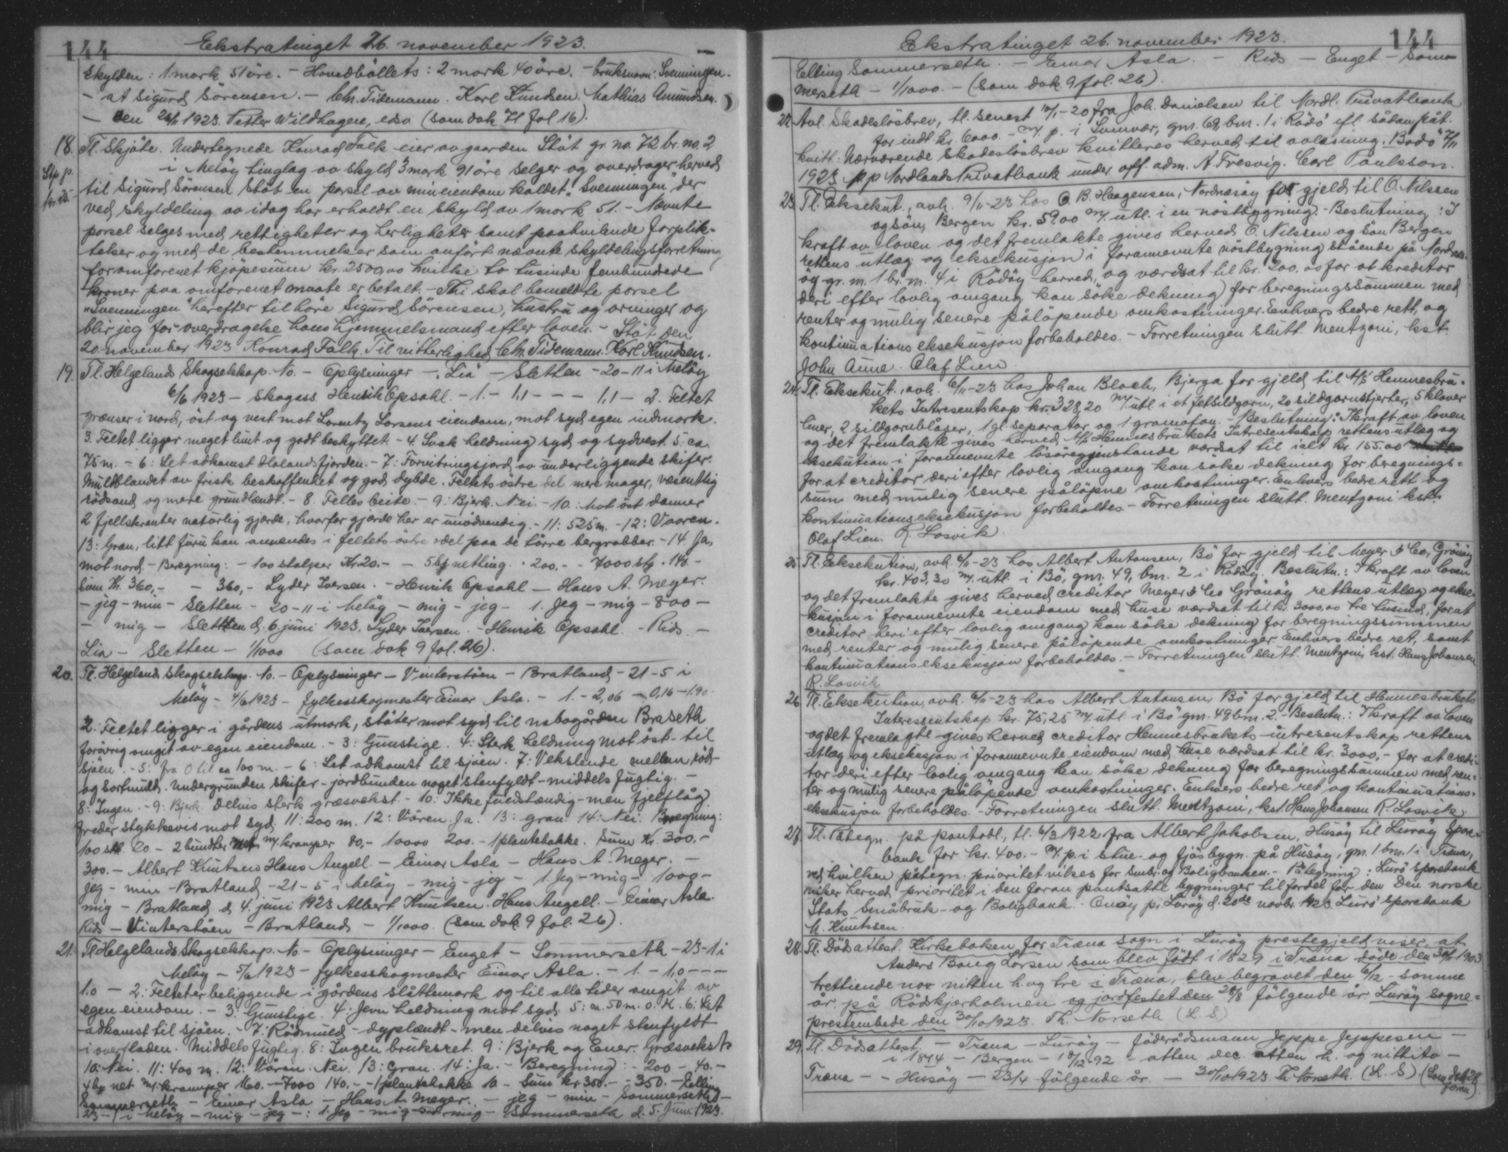 144
Ekstratinget 26. november 1923.
Skylden: 1 mark 51 öre. - Hovedbøllets: 2 mark 40 öre. - bruksnavn: Svenningen.
- at Sigurd Sörensen. - Chr. Tidemann. Karl Knudsen. Mathias Amundsen.
- den 26/11 1923. Wildhagen, edsv (som dok 71 fol 16).
18. Tl. Skjöte. Undertegnede Konrad Falk eier av gaarden Stöt gr. no. 72 br. no. 2
i Meløy tinglag av skyld 3 mark 91 öre selger og overdrager herved
til Sigurd Sörensen Stöt en parsel av min eiendom kaldet "Svenningen", der
ved skyldeling av idag har erholdt en skyld av 1 mark 51. - Nevnte
parsel selges med rettigheter og herligheter samt paahvilende forplik-
telser og med de bestemmelser som anfört nævnte skyldelingsforretning
for omforenet kjöpesum kr. 2500,00 hvilke to tusinde femhundrede
kroner paa omforenet maate er betalt. - Thi skal bemeldte parsel
"Svenningen" herefter tilhöre Sigurd Sörensen, hustru og arvinger og
blir jeg for overdragelse hans hjemmelsmand efter loven. - Stöt den
20. november 1923 Konrad Falk. Til vitterlighed Chr. Tidemann. Karl Knudsen.
19. Tl. Helgelands Skogselskap. No. - Oplysninger - Lia - Sletten - 20-11 i Meløy
6/6 1923 - Skogass Henrik Opsahl. - 1. - 1,1 - - - 1,1 - 2. Feltet
grænser i nord, öst og vest mot Lorentz Larsens eiendom, mot syd egen indmark.
3. Feltet ligger meget lunt og godt beskyttet - 4. Svak heldning syd og sydvest. 5. ca.
75 m. - 6: Let adkomst Holandsfjorden. - 7: Forvitringsjord, av underliggende skifer.
Muldblandet av frisk beskaffenhet og god dybde. Feltets östre del mere mager, væsentlig
rödsand, og mere grundlendt. - 8 Felles beite - 9. Bjerk. Nei - 10. Mot öst danner
2 fjellskrenter naturlig gjerde, hvorfor gjerde her er unödvendig. - 11: 525 m. - 12: Vaaren.
13: Gran, litt furu kan anvendes i feltets östre del paa de törre bergrabber. - 14. Ja,
mot nord. - Beregning: - 100 stolper Kr. 20. - - 5 bf netting - 200. - - 7000 stk. 140. -
Sum Kr. 360,- - 360,- Lyder Iversen. - Henrik Opsahl - Hans A. Meyer.
- jeg - min - Sletten - 20-11 i Meløy - mig - jeg - 1. Jeg - mig - 800 -
- mig - Sletten d. 6 juni 1923. Lyder Iversen. - Henrik Opsahl. - Rids. -
Lia - Sletten - 1/1000 (som dok 9 fol. 26).
20. Tl. Helgelands Skogselskap. No. - Oplysninger - Vinterstöen - Bratland - 21-5 i
Meløy - 4/6 1923 - fylkesskogmester Einar Asla. - 1. - 2,06 - 0,16 - 1,90 -
2. Feltet ligger i gårdens utmark, stöter mot syd til nabogården Braseth
forövrig omgit av egen eiendom. - 3: Gunstige. 4. Sterk heldning mot öst - til
sjöen. - 5: fra 0 til ca 100 m. - 6: Let adkomst til sjöen. 7: Vekslende mellem röd-
og sortmuld. Undergrunden skifer - jordbunden noget stenfyldt - middels fugtig. -
8: Ingen. - 9: Bjerk. Delvis sterk græsvekst - 10. Ikke fuldstændig - men fjellflåg
freder stykkevis mot syd. 11: 200 m. 12: Våren. Ja. 13: gran 14: Nei. Beregning:
100 stk 60 - 2 bindter m/ kramper 80,- 10000 200. - 1 plantehakke. Sum Kr. 300.-
300. - Albert Knutsen Hans Angell - Einar Asla - Hans A. Meyer. -
Jeg - min - Bratland - 21-5 i Meløy - mig - jeg - 1. Jeg - mig - 1000 -
mig - Bratland d. 4. juni 1923 Albert Knutsen. Hans Angell - Einar Asla
Rids - Vinterstöen - Bratland - 1/1000. (som dok 9 fol. 26).
21. Tl. Helgelands Skogselskap. No - Oplysninger - Enget - Sommerseth - 23-1 i
Meløy - 5/6 1923 - fylkesskogmester Einar Asla. - 1 - 1,0 - - -
1,0 - 2: Feltet er beliggende i gårdens slåttemark og til alle sider omgit av
egen eiendom. - 3. Gunstige. 4: Jevn heldning mot syd. 5: ca. 50 m. o. H. 6: Let
adkomst til sjöen. - 7. Rödmuld - dyplændt - men delvis noget stenfyldt
i overfladen. Middels fugtig. 8: Ingen bruksret. 9: Bjerk og Ener. Græsvekst
10. Nei. 11: 400 m. 12: Våren. Nei. 13: Gran. 14: Ja. - Beregning: - 200 - 40. -
4 bf net m/ kramper 160. - 7000 140. - 1 plantehakke 10 - Sum kr. 350. - 350. - Elling
Sommerseth - Einar Asla - Hans A. Meyer. - jeg - min - Sommerseth -
23-1 i Meløy - mig - jeg - 1. Jeg - mig - mig - Sommerseth d. 5. Juni 1923.
144
Ekstratinget 26. november 1923.
Elling Sommerseth. - Einar Asla. - Rids - Enget - Som-
merseth - 1/1000. - (som dok 9 fol. 26).
22. Avl. Skadeslösbrev, tl. senest - 20 fra Joh. Danielsen til Nordl. Privatbank
for indt kr. 6000. - m/ p. i Sumvær, gnr. 69, bnr. 1 i Rödö efl. sådan påt.
kvitt: Nærværende skadeslösbrev kvitteres herved til avlæsning. Bodö
1923. pp Nordlands Privatbank under off. adm. A. Tresvig. Carl Paulsson.
23. Tl. Eksekut., avh. 9/11-23 hos O. B. Haagensen, Nordnesöy for gjeld til O. Nilssen
og sön, Bergen kr. 5900 m/ utl. i en nöstbygning. - Beslutning: I
kraft av loven og det fremlakte gives herved O. Nilssen og Sön Bergen
rettens utlæg og eksekusjon i foranævnte nöstbygning stående på Nordnes-
öy gr. nr. 1 br. nr. 4 i Rödöy herred, og værdsat til kr. 200.00 for at kreditor
deri efter lovlig omgang kan söke dekning for beregningssummen med
renter og mulig senere pålöpende omkostninger. Enhvers bedre rett, og
kontinuationseksekusjon forbeholdes. - Forretningen slutt. Mentzoni, kst.
John Anne. Olaf Lien
24. Tl. Eksekut., avh. 6/11-23 hos Johan Bloch, Bjerga for gjeld til A/S Hemnesbru-
kets Intresentskap kr. 328,20 m/ utl. i et fetsildgarn, 20 sildgarnstjerter, 5 kløver
liner, 2 sildgarnblåser, 1 gl. separator og 1 gramofon. Beslutning: I kraft av loven
og det fremlakte gives herved A/S Hemnesbrukets Intresentskap rettens utlæg og
eksekution i foranævnte lösöregjenstande værdsat til ialt kr. 155.00
for at creditor deri efter lovlig omgang kan söke dekning for beregnings-
sum med mulig senere pålöpne omkostninger. Enhvers bedre rett og
kontinuationseksekusjon forbeholdes - Forretningen slutt. Mentzoni kst.
Olaf Lien. R. Losvik.
25. Tl. Eksekution, avh. 6/11-23 hos Albert Antonsen, Bö for gjeld til Meyer & Co, Grönöy
kr. 403,30 m/ utl. i Bö, gnr. 49, bnr. 2 i Rödöy. Beslutn.: I kraft av loven
og det fremlakte gives herved creditor Meyer & Co Grönöy rettens utlæg og ekse-
kusjon i foranævnte eiendom med huse værdsat til kr. 3000,00 tre tusind, for at
creditor heri efter lovlig omgang kan söke dekning for beregningssummen
med renter og mulig senere pålöpende omkostninger. Enhvers bedre ret, samt
kontinuationseksekusjon forbeholdes. - Forretningen slutt. Mentzoni, kst. Hans Johansen
R. Losvik
26. Tl. Eksekution, avh. 6/11-23 hos Albert Antonsen, Bö for gjeld til Hemnesbrukets
Intresentskap kr. 75,25 m/ utl. i Bö gnr. 49 bnr. 2. - Beslutn.: I kraft av loven
og det fremlagte gives herved creditor Hemnesbrukets intresentskap rettens
utlæg og eksekusjon i foranævnte eiendom med huse værdsat til kr. 3000,- for at credi-
tor deri efter lovlig omgang kan söke dekning for beregningssummen med ren-
ter og mulig senere pålöpende omkostninger. Enhvers bedre ret og kontinuations-
eksekusjon forbeholdes. - Forretningen slutt. Mentzoni, kst Hans Johansen R. Losvik
27. Tl. Påtegn. på pantobl., tl. 6/3 1922 fra Albert Jakobsen, Husöy til Luröy Spare-
bank for kr. 400. - m/ p. i stue- og fjösbygn. på Husöy, gnr. 1 bnr. 1 i Træna,
ved hvilken påtegn. prioritet vikes for Småbr. og Boligbanken. - Påtegning: Luröy Sparebank
viker herved prioritet i den foran pantsatte bygninger til fordel for den Den norske
Stats Småbruk- og Boligbank. Onöy pr. Luröy d. 20de novbr. 1923 Luröy Sparebank
M. Knutssen.
28. Tl. Dödsattest. Kirkeboken for Træna sogn i Luröy prestegjeld viser at
Anders Bang Larsen som blev födt i 1829 i Træna döde den 30/11 1903
trettiende nov nitten h. og tre i Træna, blev begravet den 6/12 - samme
år på Rödskjærholmen og jordfestet den 28/8 fölgende år. Luröy sogne-
prestembede den 30/10 1923. Th. Norseth (L. S)
29. Tl. Dödsattest - Træna - Luröy - föderådsmann Jeppe Jeppesen -
i 1844 - Bergen - 18/12-92 - atten dec. atten h. og nitti to -
Træna - - Husöy - 23/4 fölgende år - 30/10 1923. Th Norseth (L. S) (Som dok 28 foran)